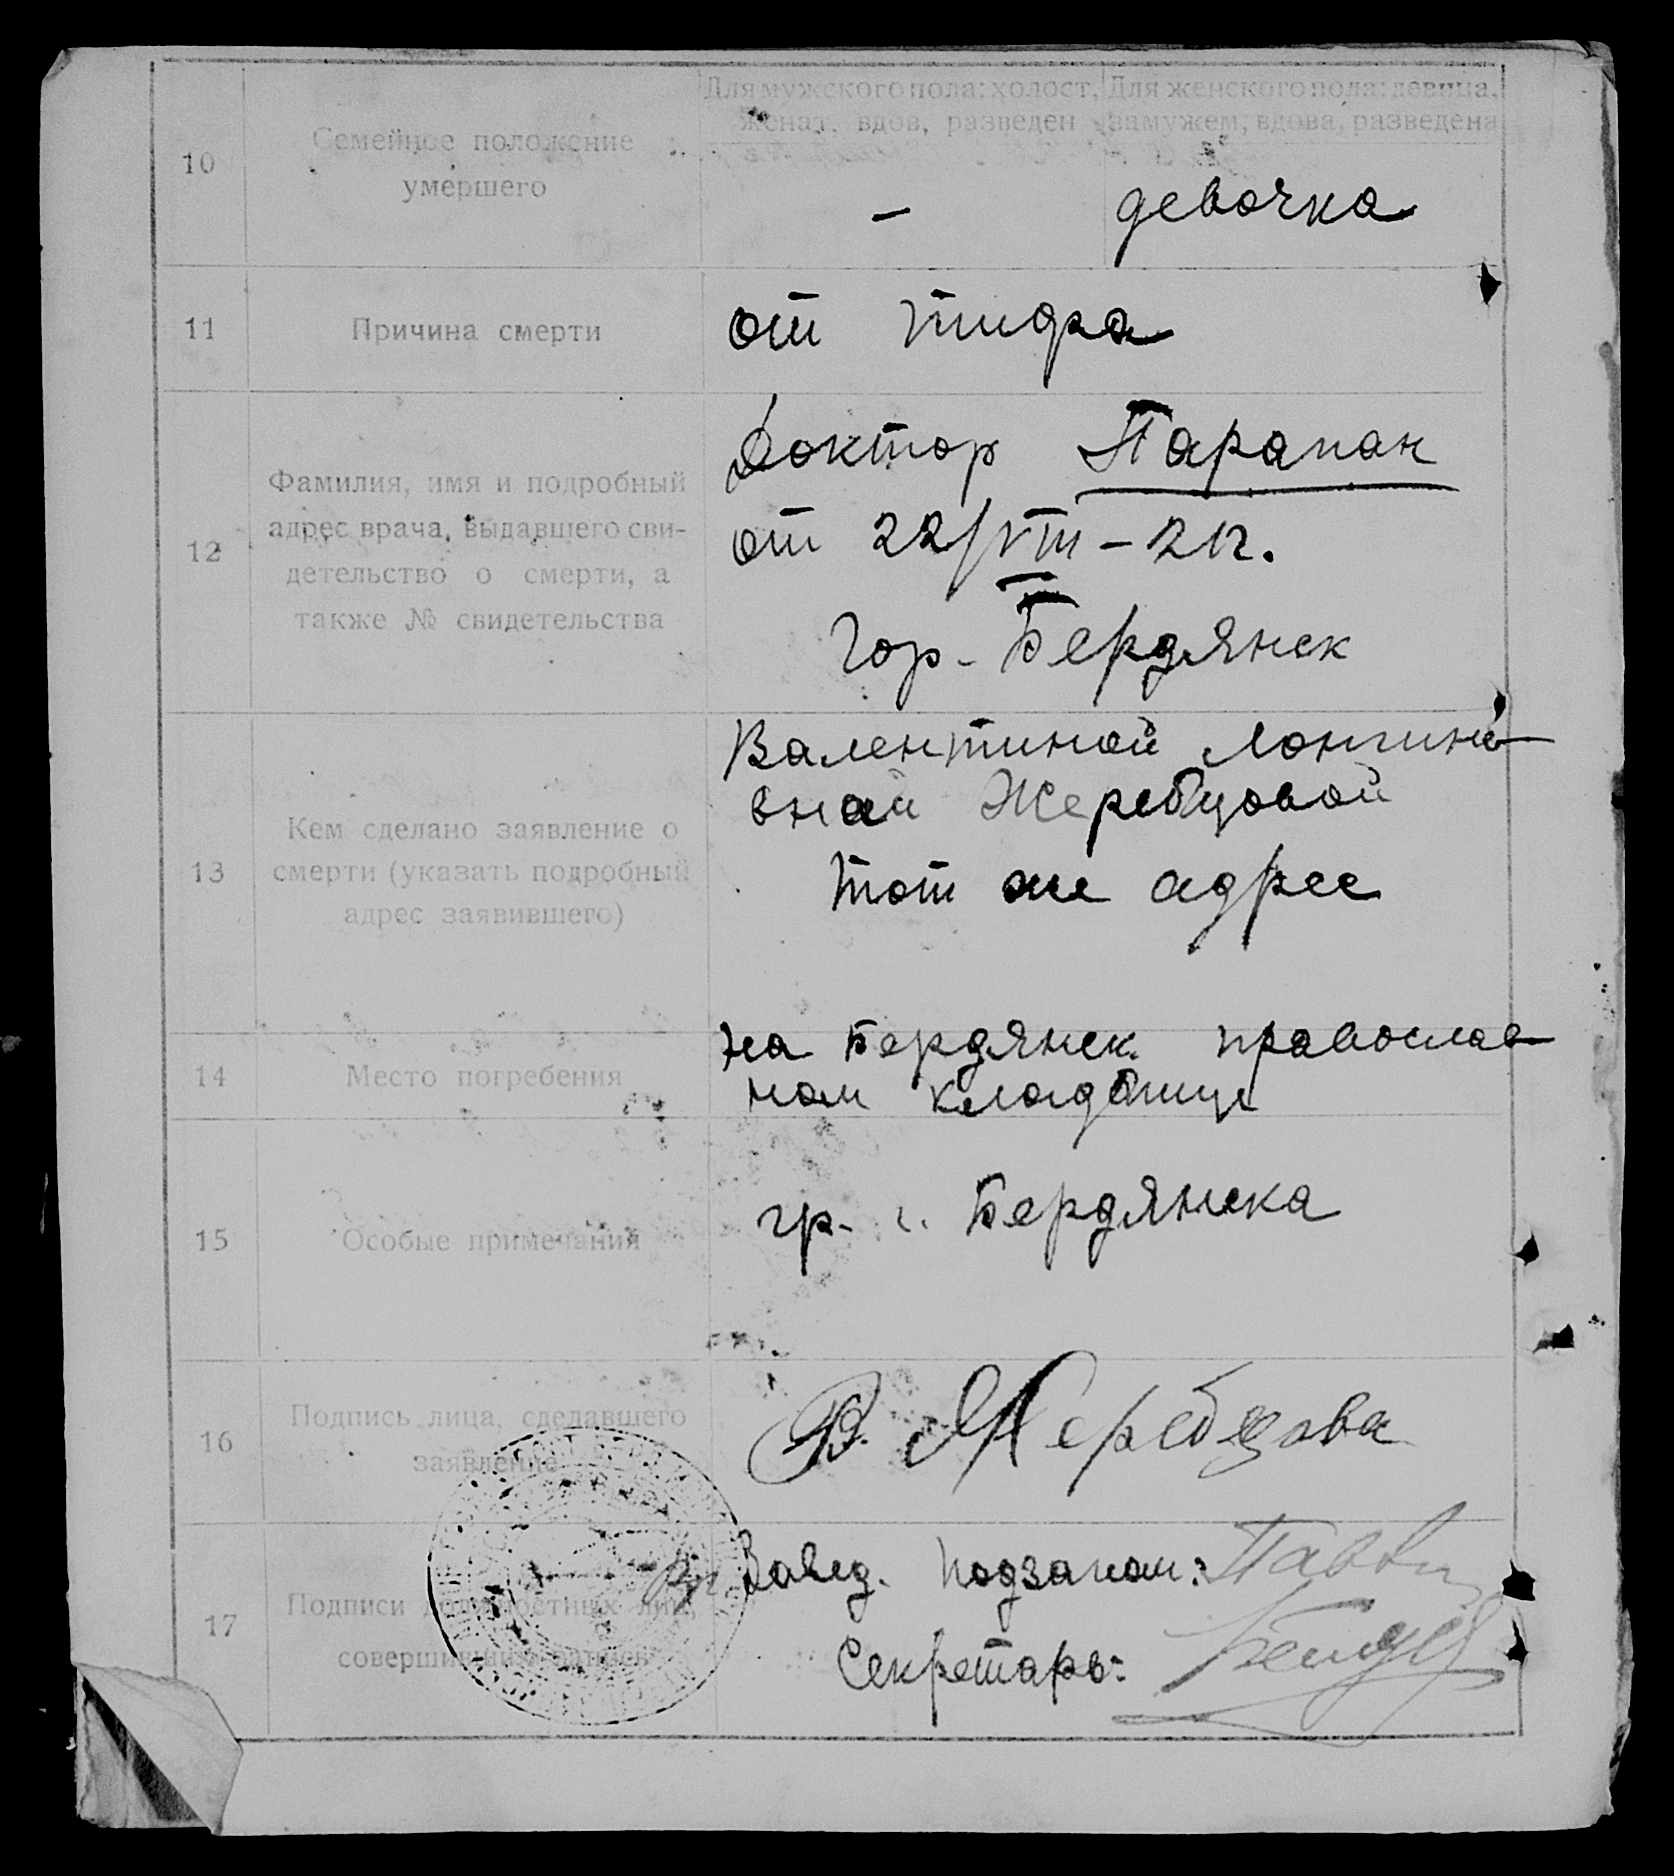 Для мужского пола: холост, женат, вдов, разведен
Для женского пола: девица, замужем, вдова, разведена
10
Семейное положение
умершего
–
девочка
11
Причина смерти
от тифа
12
Фамилия, имя и подробный
адрес врача, выдавшего сви-
детельство о смерти, а
также № свидетельства
Доктор Парапан
от 22/VIII – 21г.
Гор- Бердянск
13
Кем сделано заявление о
смерти (указать подробный
адрес заявившего)
Валентиной Лонгино
вной Жеребцовой
тот же адрес
14
Место погребения
на Бердянск. православ
ном кладбище
15
Особые примечания
гр. г. Бердянска
16
Подпись лица, сделавшего
заявление
В. Жеребцова
17
Подписи должностных лиц,
совершивших запись
Завед. подзагом:
Секретарь: